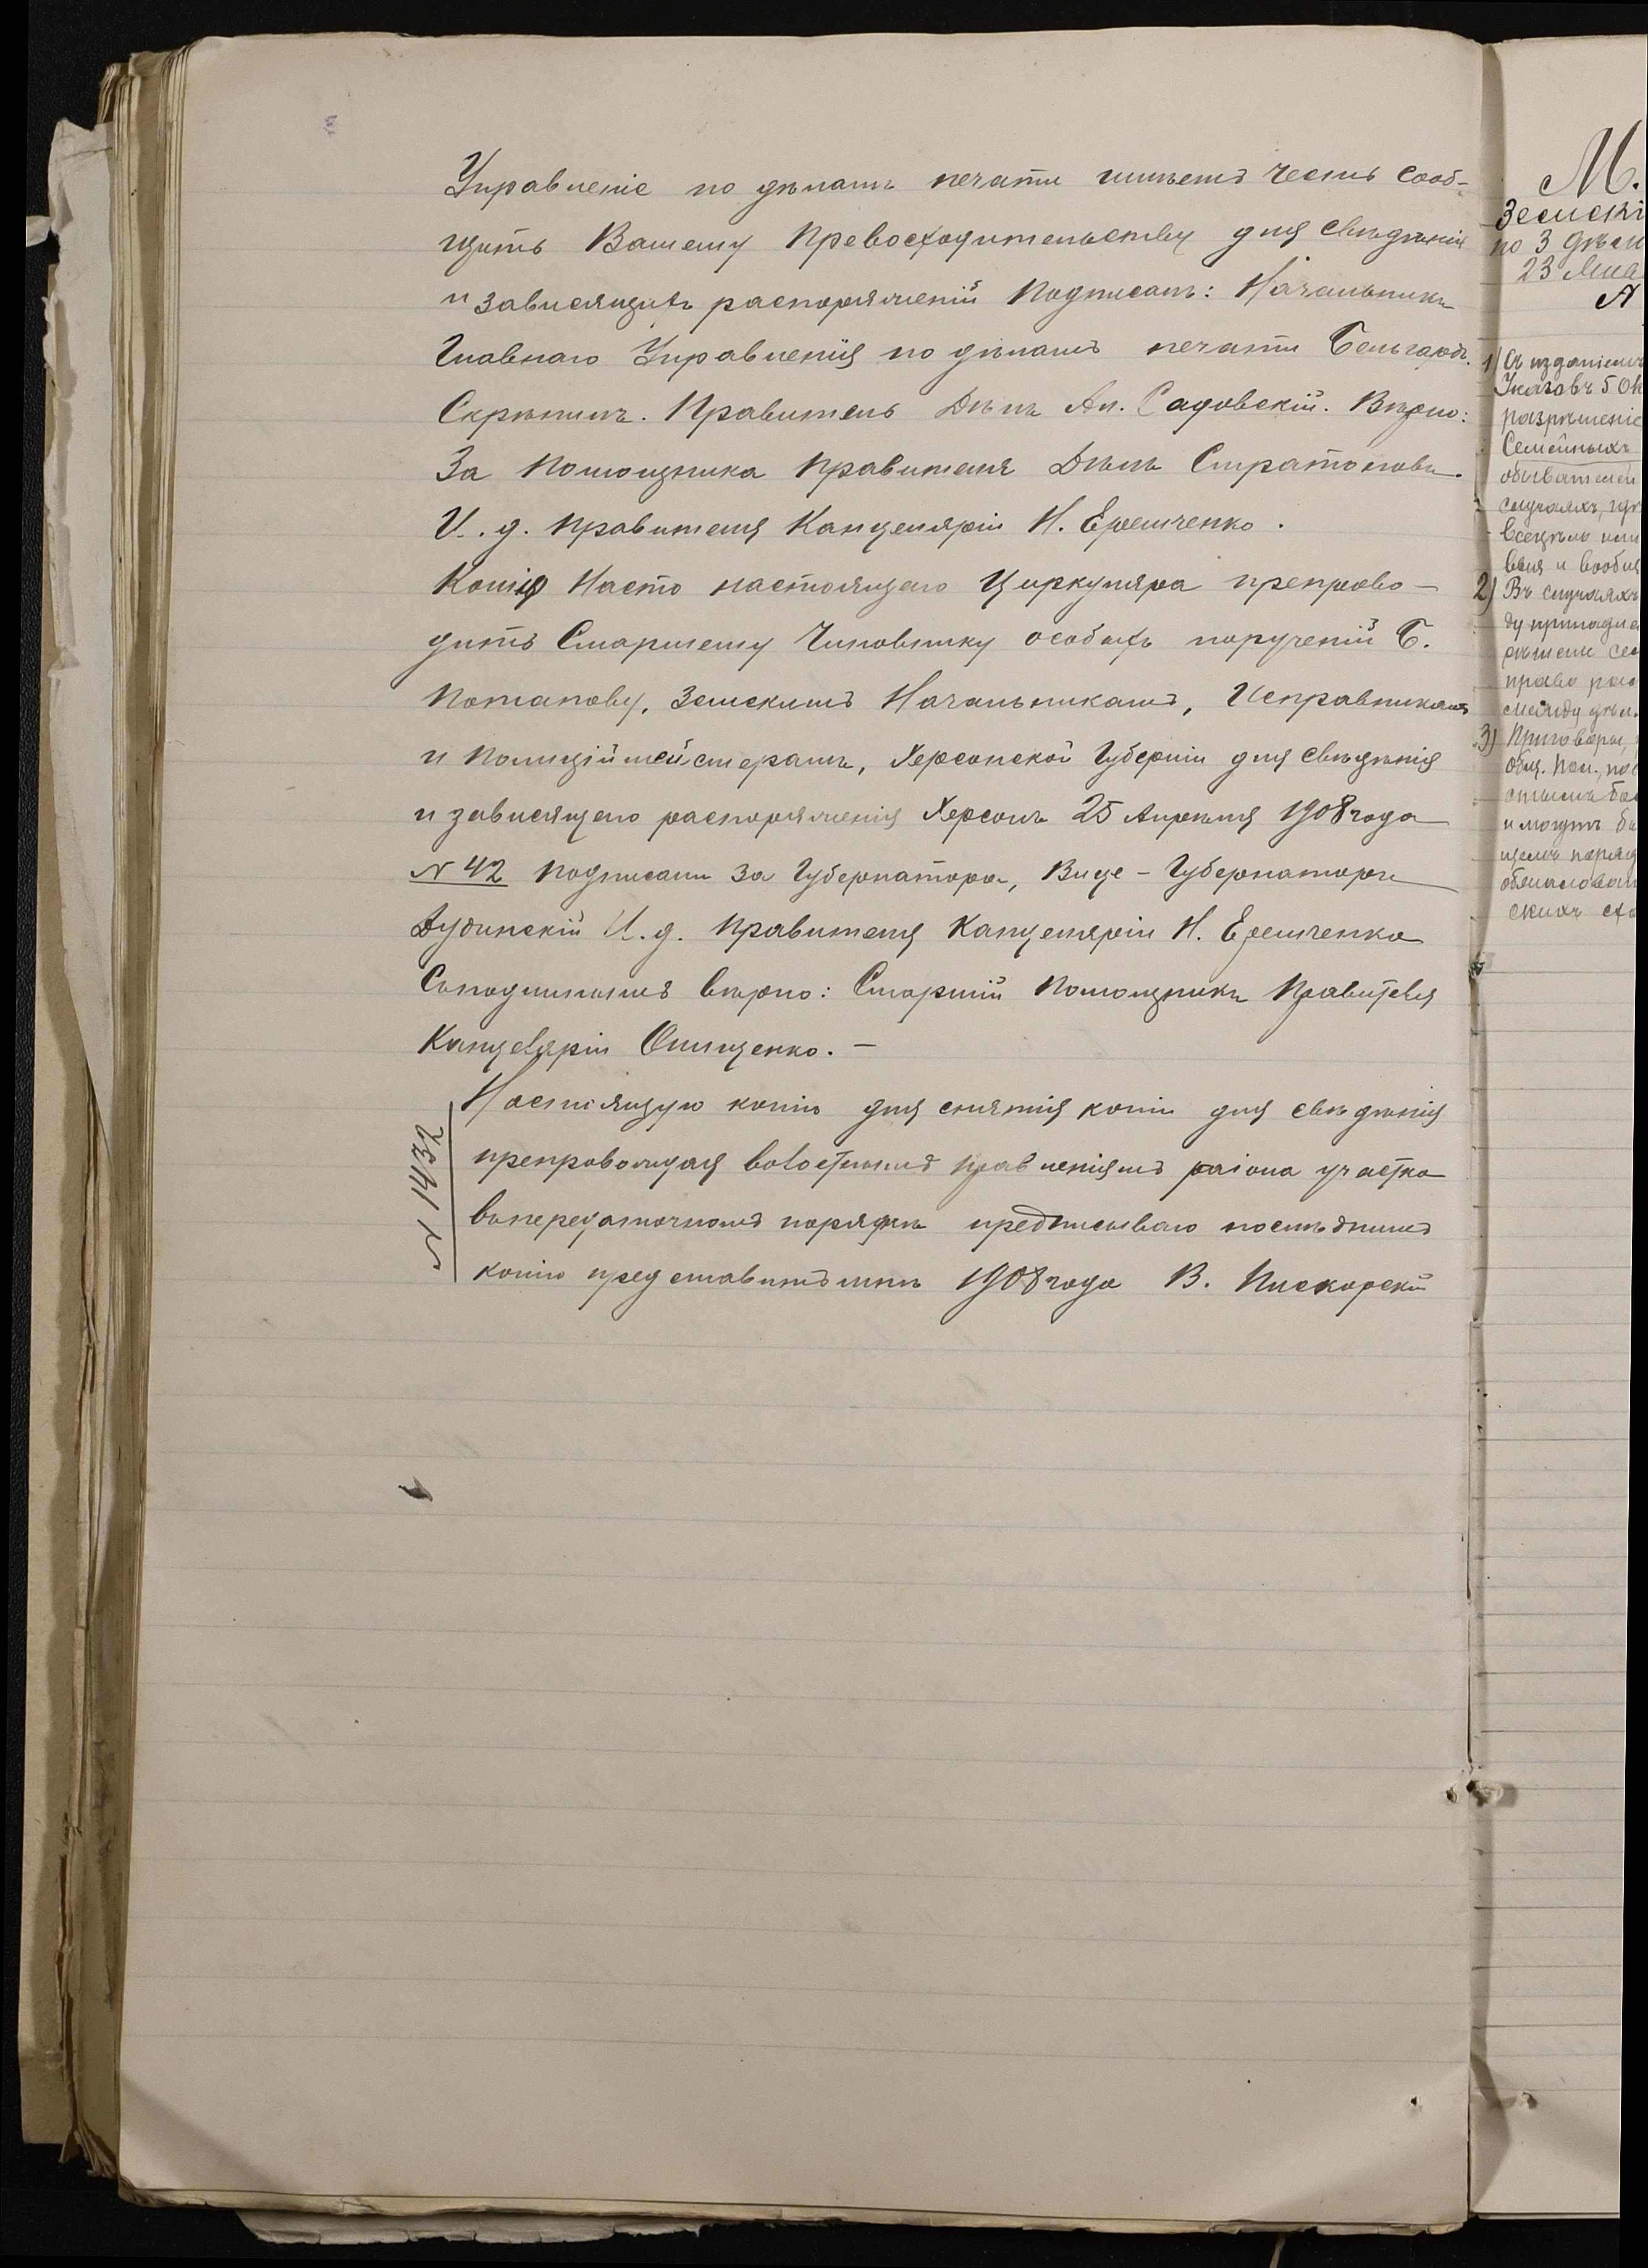 Управленіе по дѣламъ печати имѣетъ честь сооб-
щить Вашему Превосходительству для свѣдѣнія
и зависящихъ распоряженій Подписалъ: Начальникъ
Главнаго Управленія по дѣламъ печати Бельгардъ.
Скрѣпилъ. Правитель Дѣлъ Ап. Садовскій. Вѣрно:
За Помощника Правителя Дѣлъ Стратоновъ.
И. д. Правителя Канцеляріи Н. Еремченко.
Копію Насто настоящаго Циркуляра препрово-
дить Старшему Чиновнику особыхъ порученій Б.
Потапову, Земскимъ Начальникамъ, Исправникамъ
и Полиціймейстерамъ, Херсонской Губерніи для свѣдѣнія
и зависящаго распоряженія Херсонъ 25 Апрѣля 1908 года
№ 42 Подписали За Губернатора, Вице-Губернаторъ
И. д. Правителя Канцеляріи Н. Еремченко
Съподлиннымъ вѣрно: Старшій Помощникъ Правителя
Канцеляріи Онищенко. –
Настоящую копію для снятія копіи для свѣдѣнія
препровождая волостнымъ правленіямъ раіона участка
въпередаточномъ порядкѣ предписываю послѣднимъ
копію представить мнѣ 1908 года В. Пискорскій
№ 1432
М.
Земскі
по 3 дѣл
23 Мая
1) Съ изданіемъ
Указовъ 5 Ок
разрѣшеніе
Семейныхъ
обывателей
случаяхъ, гдѣ
всецѣло или
выя и вообще
2) Въ случаяхъ
ду принадле
рѣшеніе сем
право рас
между
3) Приговоры,
и могутъ бы
щемъ поряд
обжалован
скихъ